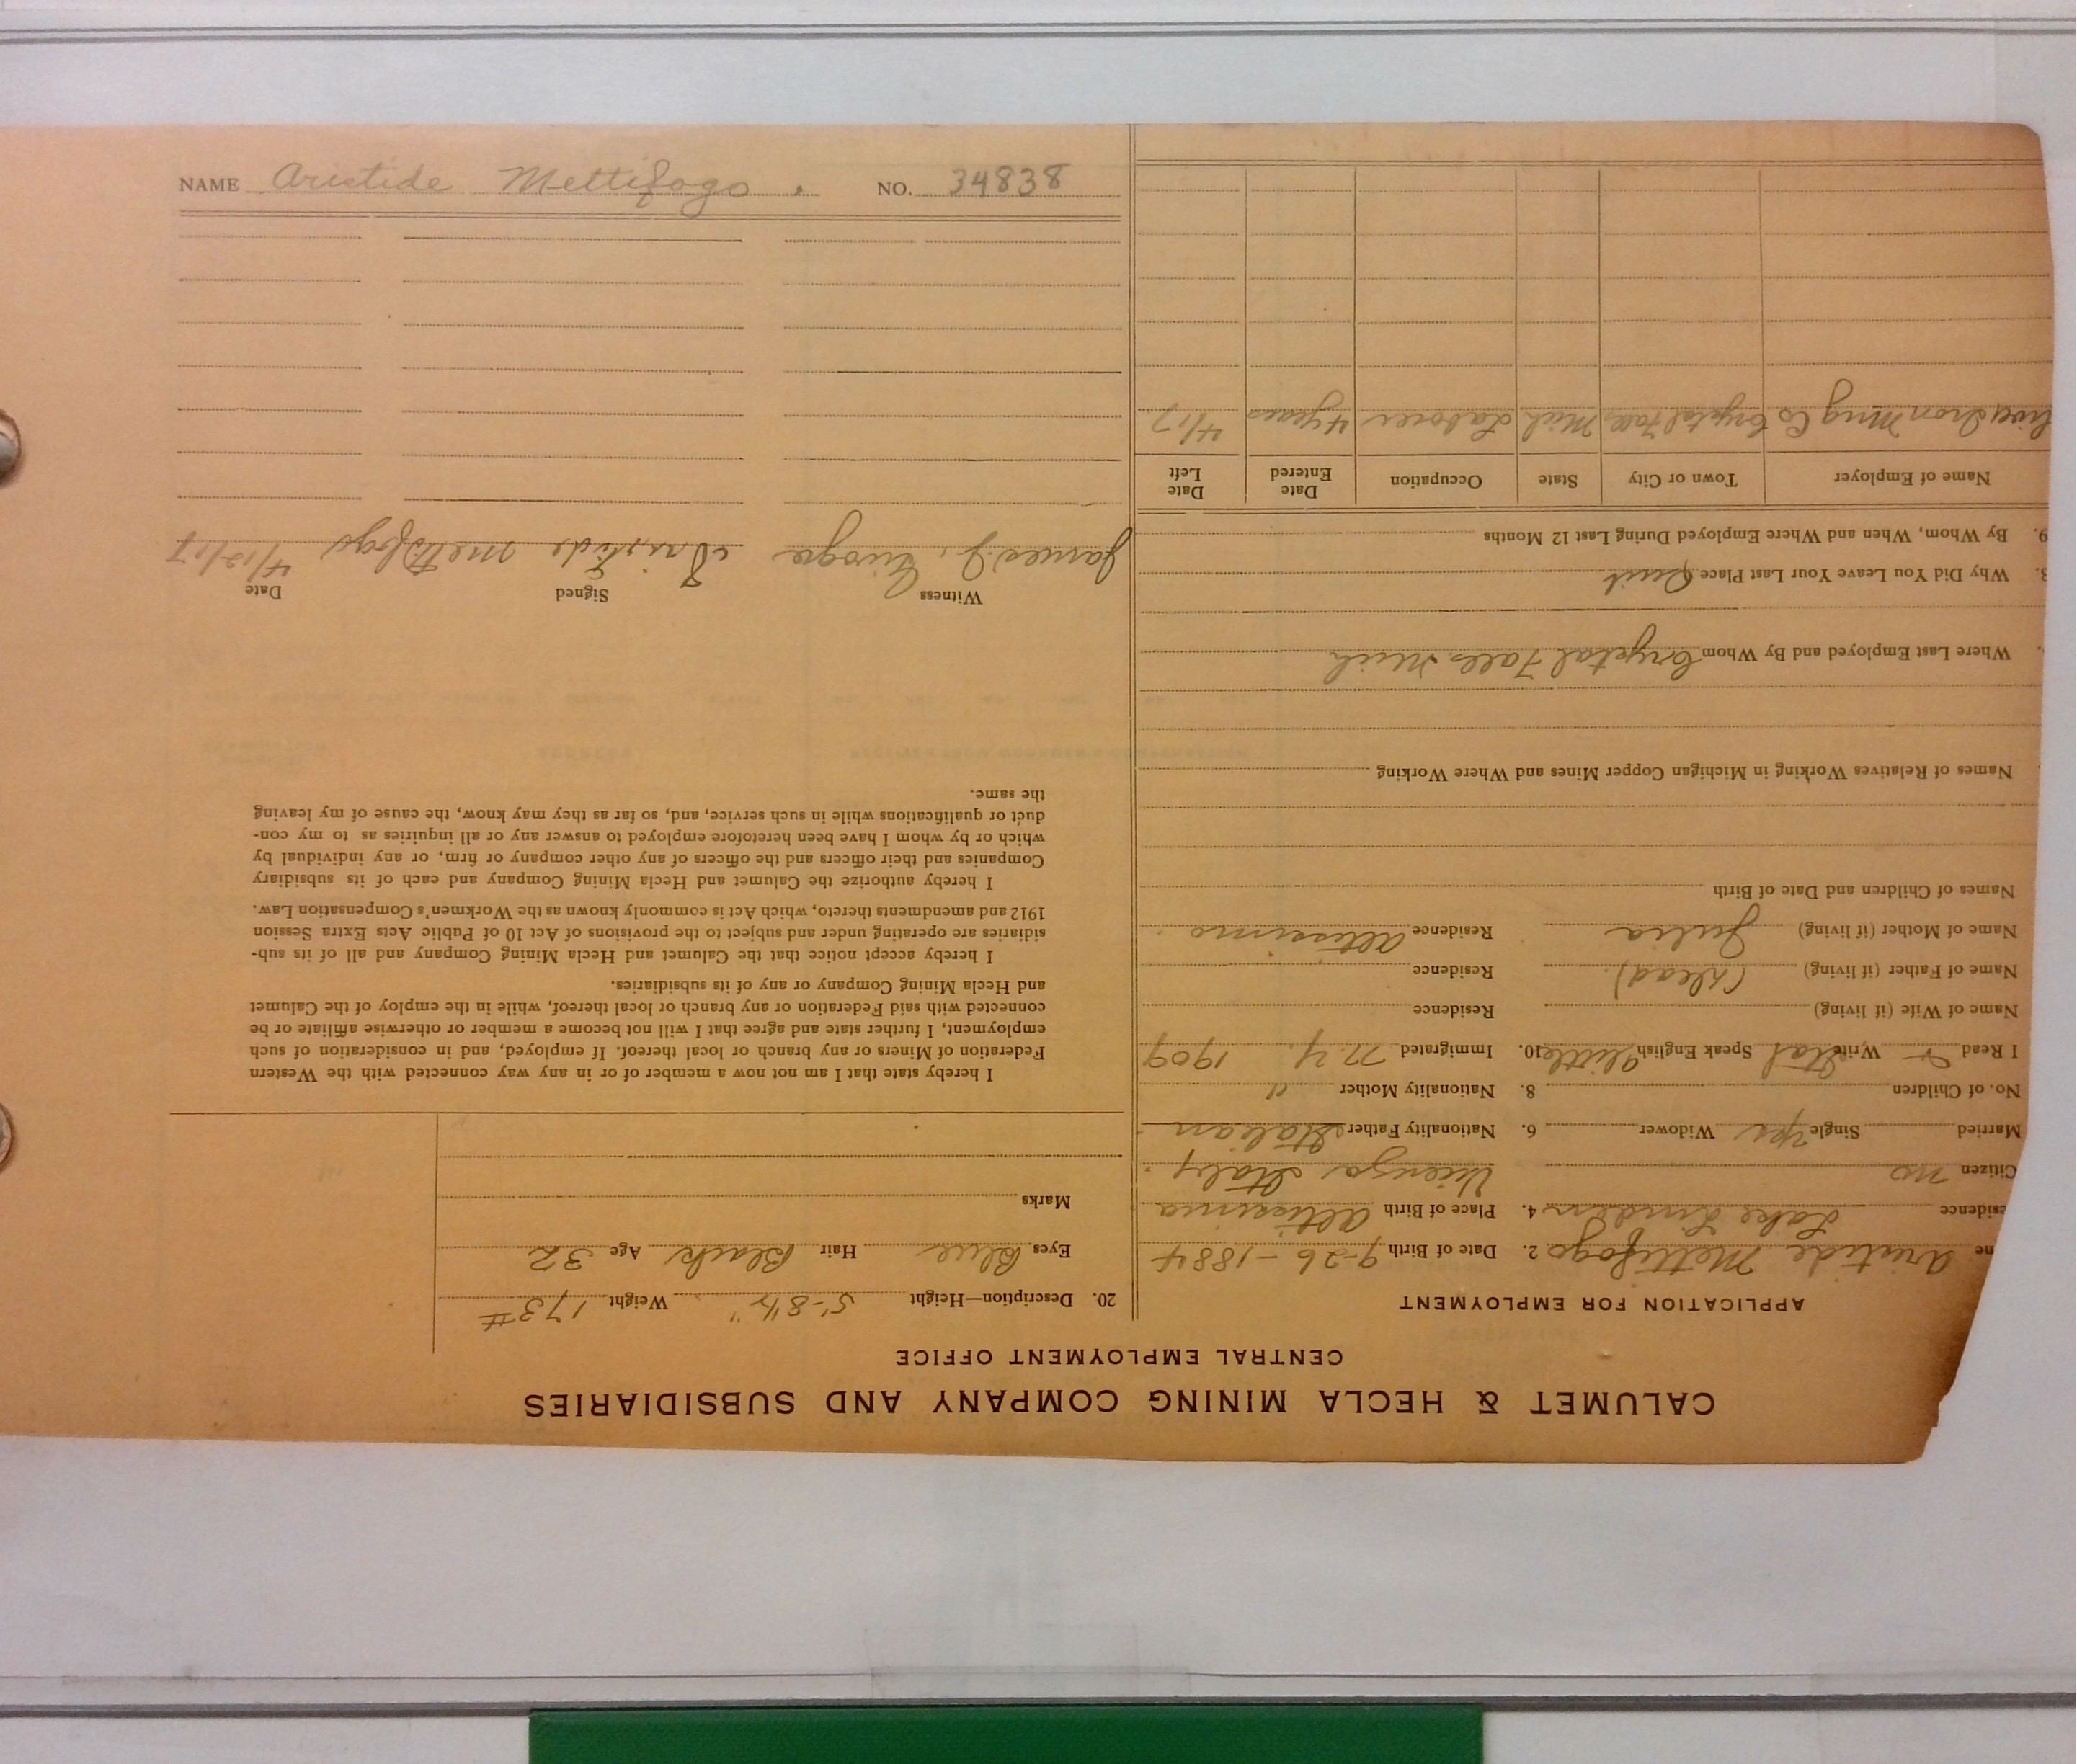 NAME Aristide Mettifogo. NO. 34838
CALUMET & HECLA MINING COMPANY AND SUBSIDIARIES
CENTRAL EMPLOYMENT OFFICE
APPLICATION FOR EMPLOYMENT
Aristide Mettifogo 2. Date of Birth 9-26-1884
Residence Lake Linden 4. Place of Birth Altissima
Citizen no Vicenza Italy.
Married Single yes Widower 6. Nationality Father Italian
No. of Children 8. Nationality Mother "
I Read & Write Ital Speak English little 10. Immigrated N.Y. 1909
Name of Wife (if living) Residence
Name of Father (if living) (dead). Residence
Name of Mother (if living) Julia Residence Altissimo.
Names of Children and Date of Birth
Names of Relatives Working in Michigan Copper Mines and Where Working
Where Last Employed and By Whom Crystal Falls Mich
Why Did You Leave Your Last Place Quit
9. By Whom, When and Where Employed During Last 12 Months
Name of Employer Town or City State Occupation Date Entered Date Left
Iron Mng Co Crystal Falls Mich Laborer 4 years 4/17
20. Description—Height 5'-8½" Weight 173#
Eyes Blue Hair Black Age 32
Marks
I hereby state that I am not now a member of or in any way connected with the Western
Federation of Miners or any branch or local thereof. If employed, and in consideration of such
employment, I further state and agree that I will not become a member or otherwise affiliate or be
connected with said Federation or any branch or local thereof, while in the employ of the Calumet
and Hecla Mining Company or any of its subsidiaries.
I hereby accept notice that the Calumet and Hecla Mining Company and all of its sub-
sidiaries are operating under and subject to the provisions of Act 10 of Public Acts Extra Session
1912 and amendments thereto, which Act is commonly known as the Workmen's Compensation Law.
I hereby authorize the Calumet and Hecla Mining Company and each of its subsidiary
Companies and their officers and the officers of any other company or firm, or any individual by
which or by whom I have been heretofore employed to answer any or all inquiries as to my con-
duct or qualifications while in such service, and, so far as they may know, the cause of my leaving
the same.
Witness Signed Date
James J. Aristide Mettifogo 4/12/17